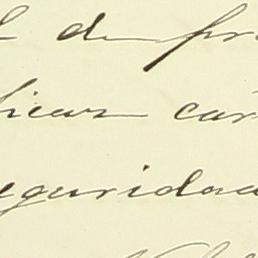 l de pr
licas cár
eguridad